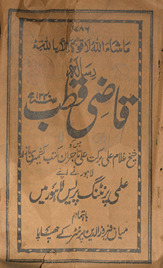 ۷۸۶
ماشاء اللہ لا قوۃ الا باللہ
رسالہ
قاضی قطب
جس کو
شیخ غلام علی برکت علی تاجران کتب کشمیری بازار
لاہور نے اپنے
علمی پرنٹنگ پریس لاہور میں
باہتمام
میاں فیروز الدین پرنٹر کے چھپوایا